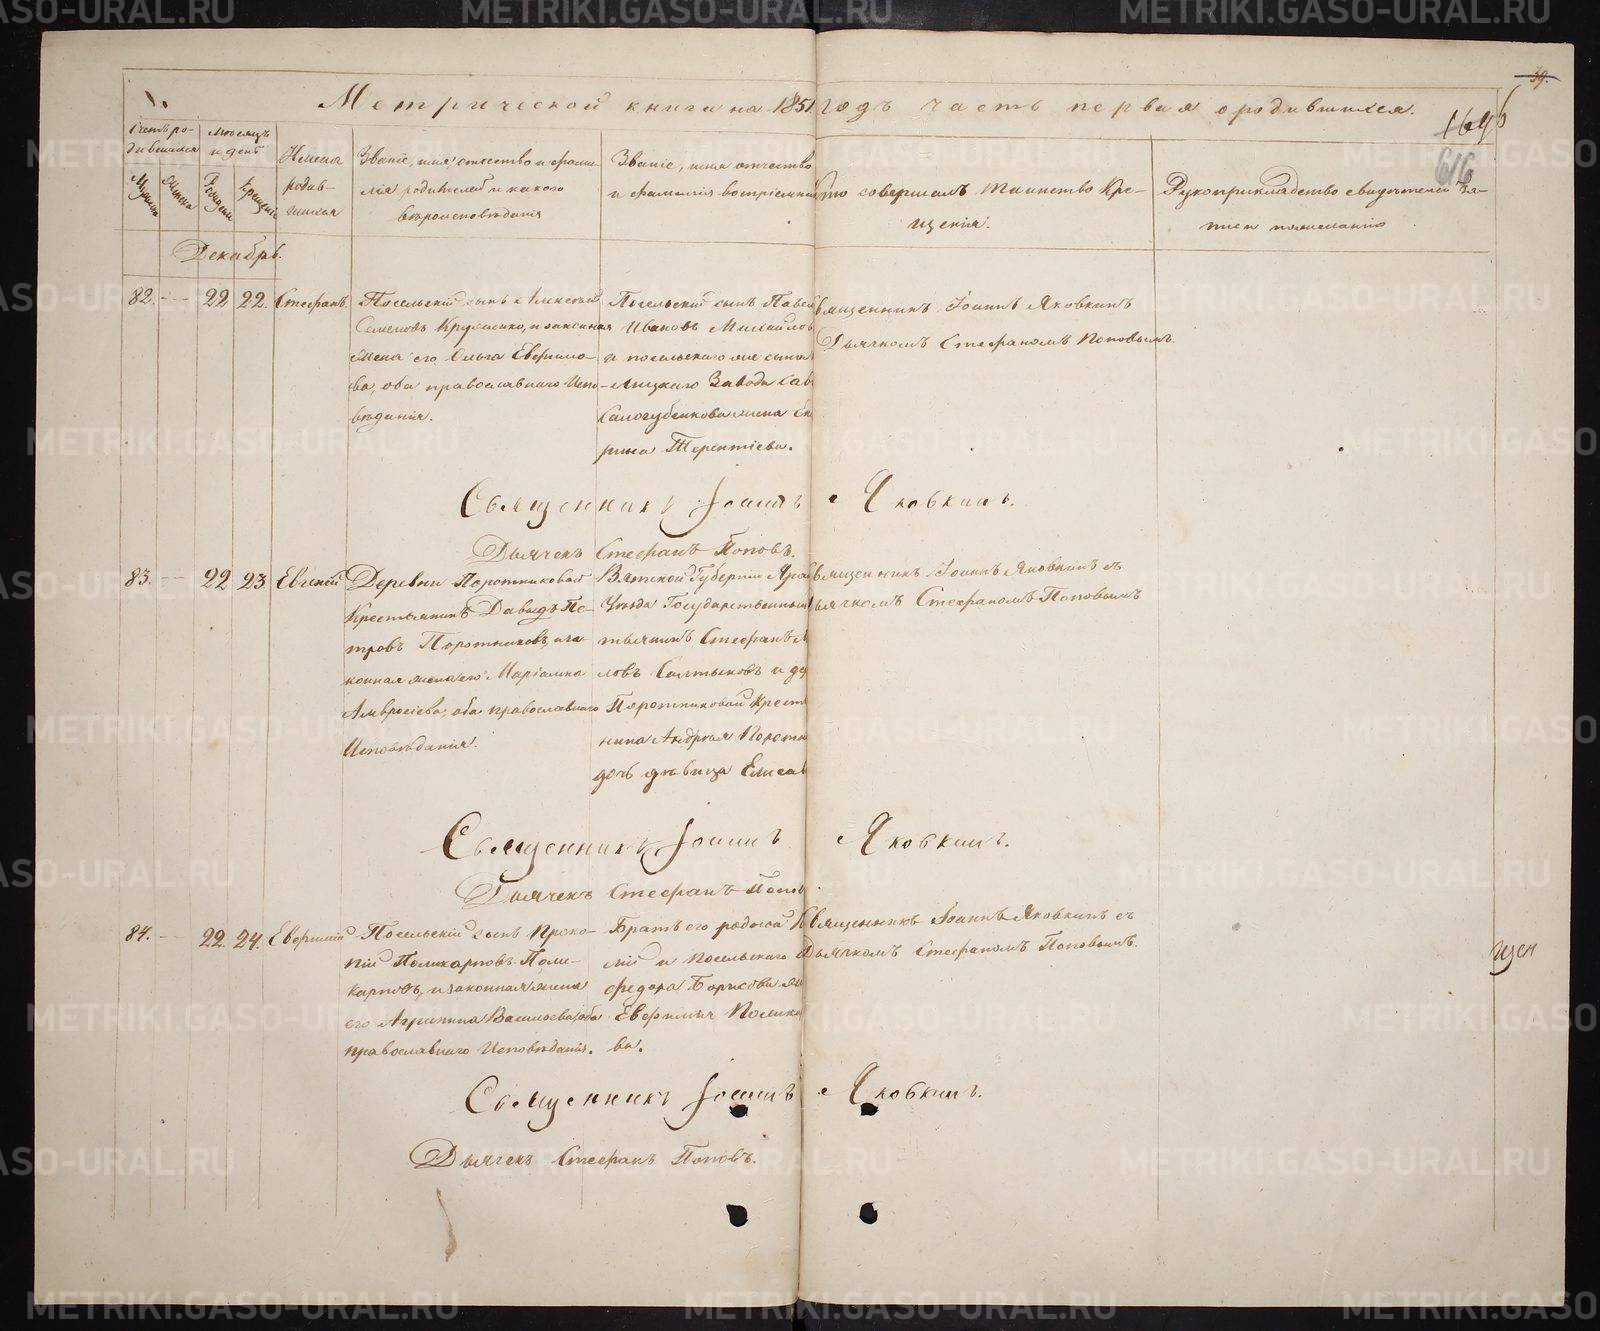 Метрической книги на 1851 годъ часть первая о родившихся.
39.
616
Счетъ родившихся
Мѣсяцъ и день
Имена родившихся
Званіе, имя отчество и фамилія родителей и какого вѣроисповѣданія
Званіе, имя отчество и фамилія воспріемни
то совершалъ таинство Крещенія.
Рукоприкладство свидѣтелей записи по желанію
Декабрь.
82. 22 22. Стефанъ.
Посельскій сынъ Алексѣй
Семеновъ Кружилко, и законная
жена его Ольга Евфимо-
ва, оба православнаго Испо-
вѣданія.
Посельскій сынъ Павел
Ивановъ Михайлов
и посельскаго же сына
Завода Сав
Самогубенкова жена Ек
рина Терентіева.
вященникъ Іоаннъ Яковкинъ
Дьячкомъ Стефаномъ Поповымъ.
Священникъ Іоаннъ Яковкинъ.
Дьячекъ Стефанъ Поповъ.
83. 22 23 Евгеній
Деревни Поротниковой
Крестьянинъ Давидъ Пе-
тровъ Поротниковъ, и за-
конная жена его Маріамна
Амвросіева, оба православнаго
Исповѣданія.
Вятской Губерніи Яран
Уѣзда Государственный
тьянинъ Стефанъ
ловъ Салтыковъ и де
Поротниковой Крест
нина Андрея Поротн
дочь дѣвица Елисав
вященникъ Іоаннъ Яковкинъ съ
ьячкомъ Стефаномъ Поповымъ
Священникъ Іоаннъ Яковкинъ.
Дьячекъ Стефанъ Попов
84. 22. 24. Евгеній
Посельскій сынъ Проко-
пій Поликарповъ Поли-
карповъ, и законная жена
его Агрипина Васильева, оба
православнаго Исповѣданія.
Братъ его родной
лій и Посельскаго
федора Борисова же
Евфимья Полика
ва.
вященникъ Іоаннъ Яковкинъ съ
Дьячкомъ Стефаномъ Поповымъ.
щен
Священникъ Іоаннъ Яковкинъ.
Дьячекъ Стефанъ Поповъ.
METRIKI.GASO-URAL.RU